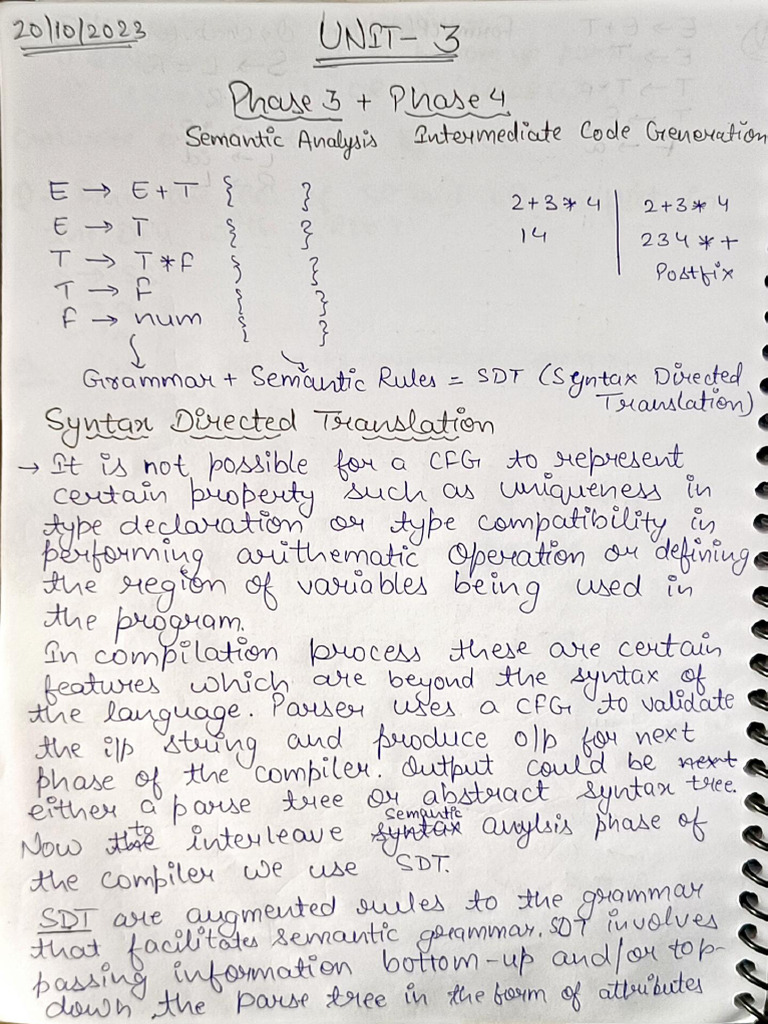 20/10/2023
UNIT-3
Phase 3 + Phase 4
Semantic Analysis Intermediate Code Generation
E → E+T { }
E → T { }
T → T*f { }
T → f { }
f → num { }
2+3*4
14
2+3*4
234*+
Postfix
Grammar + Semantic Rules = SDT (Syntax Directed
Translation)
Syntax Directed Translation
→ It is not possible for a CFG to represent
certain property such as uniqueness in
type declaration or type compatibility in
performing arithematic operation or defining
the region of variables being used in
the program.
In compilation process these are certain
features which are beyond the syntax of
the language. Parser uses a CFG to validate
the i/p string and produce o/p for next
phase of the compiler. Output could be next
either a parse tree or abstract syntax tree.
Now the to interleave syntax semantic anylsis phase of
the compiler we use SDT.
SDT are augmented rules to the grammar
that facilitates semantic grammar. SDT involves
passing information bottom-up and/or top-
down the parse tree in the form of attributes